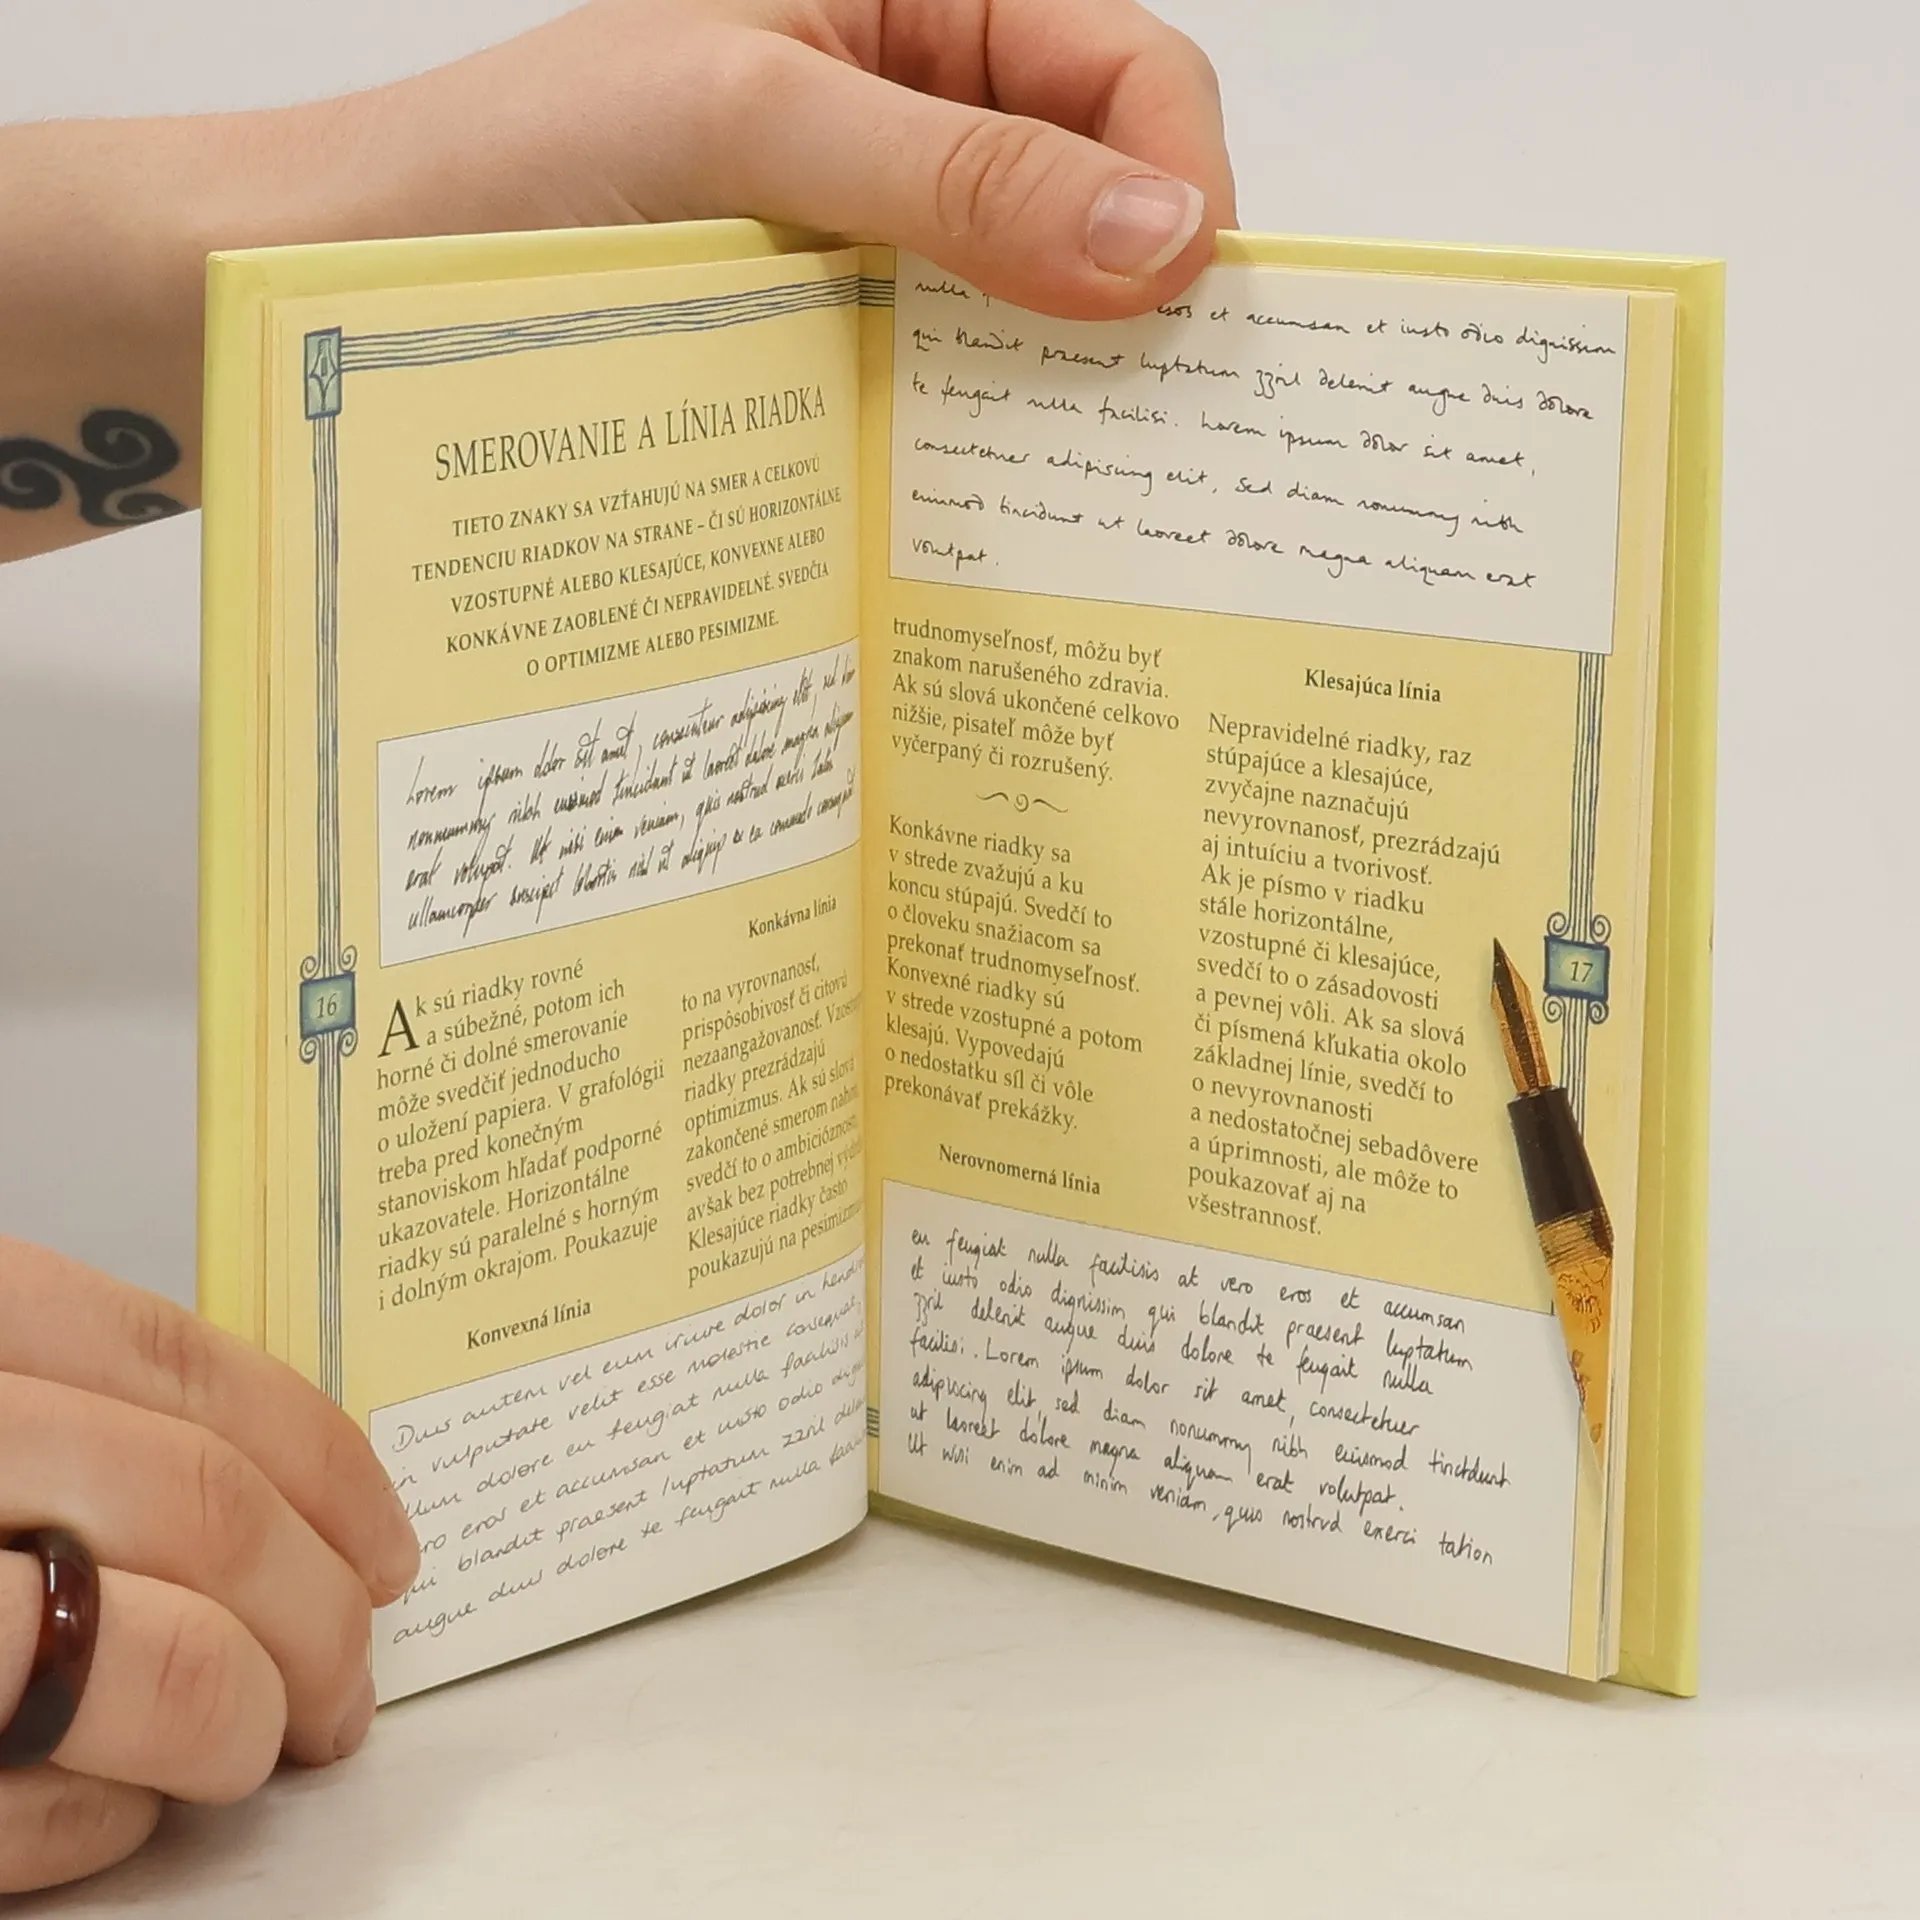 SMEROVANIE A LÍNIA RIADKA
TIETO ZNAKY SA VZŤAHUJÚ NA SMER A CELKOVÚ
TENDENCIU RIADKOV NA STRANE – ČI SÚ HORIZONTÁLNE
VZOSTUPNÉ ALEBO KLESAJÚCE, KONVEXNE ALEBO
KONKÁVNE ZAOBLENÉ ČI NEPRAVIDELNÉ. SVEDČIA
O OPTIMIZME ALEBO PESIMIZME.
Lorem ipsum dolor sit amet, consectetur adipiscing elit, sed
nonnummy nibh euismod tincidunt ut laoreet dolore magna aliquam
erat volutpat. Ut wisi enim veniam, quis nostrud exerci
ullamcorper suscipit lobortis nisl ut aliquip ex ea commodo consequat
Konkávna línia
16
Ak sú riadky rovné
a súbežné, potom ich
horné či dolné smerovanie
môže svedčiť jednoducho
o uložení papiera. V grafológii
treba pred konečným
stanoviskom hľadať podporné
ukazovatele. Horizontálne
riadky sú paralelné s horným
i dolným okrajom. Poukazuje
to na vyrovnanosť,
prispôsobivosť či citovú
nezaangažovanosť.
riadky prezrádzajú
optimizmus. Ak sú slová
zakončené smerom
svedčí to o ambicióznosti
avšak bez potrebnej
Klesajúce riadky často
poukazujú na
Konvexná línia
Duis autem vel eum iriure dolor in
in vulputate velit esse molestie consequat,
dolore eu feugiat nulla facilisis
eros et accumsan et iusto odio
blandit praesent luptatum zzril
augue duis dolore te feugait nulla
nulla
et accumsan et iusto odio dignissim
qui blandit praesent luptatum zzril delenit augue duis dolore
te feugait nulla facilisi. Lorem ipsum dolor sit amet,
consectetuer adipiscing elit, sed diam nonummy nibh
euismod tincidunt ut laoreet dolore magna aliquam erat
volutpat.
trudnomyseľnosť, môžu byť
znakom narušeného zdravia.
Ak sú slová ukončené celkovo
nižšie, pisateľ môže byť
vyčerpaný či rozrušený.
Konkávne riadky sa
v strede zvažujú a ku
koncu stúpajú. Svedčí to
o človeku snažiacom sa
prekonať trudnomyseľnosť.
Konvexné riadky sú
v strede vzostupné a potom
klesajú. Vypovedajú
o nedostatku síl či vôle
prekonávať prekážky.
Nerovnomerná línia
Klesajúca línia
Nepravidelné riadky, raz
stúpajúce a klesajúce,
zvyčajne naznačujú
nevyrovnanosť, prezrádzajú
aj intuíciu a tvorivosť.
Ak je písmo v riadku
stále horizontálne,
vzostupné či klesajúce,
svedčí to o zásadovosti
a pevnej vôli. Ak sa slová
či písmená kľukatia okolo
základnej línie, svedčí to
o nevyrovnanosti
a nedostatočnej sebadôvere
a úprimnosti, ale môže to
poukazovať aj na
všestrannosť.
17
eu feugiat nulla facilisis at vero eros et accumsan
et iusto odio dignissim qui blandit praesent luptatum
zzril delenit augue duis dolore te feugait nulla
facilisi. Lorem ipsum dolor sit amet, consectetuer
adipiscing elit, sed diam nonummy nibh euismod tincidunt
ut laoreet dolore magna aliquam erat volutpat.
Ut wisi enim ad minim veniam, quis nostrud exerci tation